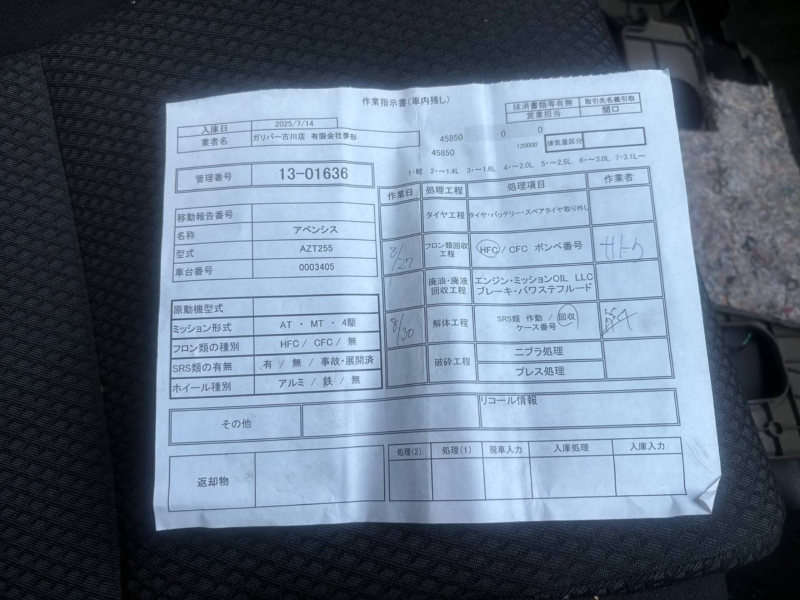 作業指示書(車内残し)
抹消書類等有無 取引先名義引取
営業担当 関口
入庫日 2025/7/14
業者名 ガリバー古川店 有限会社
45850 0 0
45850 120000 排気量区分
1・軽 2・~1.4L 3・~1.6L 4・~2.0L 5・~2.5L 6・~3.0L 7・3.1L~
管理番号 13-01636
移動報告番号
名称 アベンシス
型式 AZT255
車台番号 0003405
原動機型式
ミッション形式 AT ・ MT ・ 4駆
フロン類の種別 HFC / CFC / 無
SRS類の有無 有 / 無 / 事故・展開済
ホイール種別 アルミ / 鉄 / 無
作業日 処理工程 処理項目 作業者
タイヤ工程 タイヤ・バッテリー・スペアタイヤ取り外し
8/27 フロン類回収工程 HFC / CFC ボンベ番号 サトウ
廃油・廃液回収工程 エンジン・ミッションOIL LLC
ブレーキ・パワステフルード
8/30 解体工程 SRS類 作動 / 回収
ケース番号
破砕工程 ニブラ処理
プレス処理
その他 リコール情報
返却物
処理(2) 処理(1) 現車入力 入庫処理 入庫入力